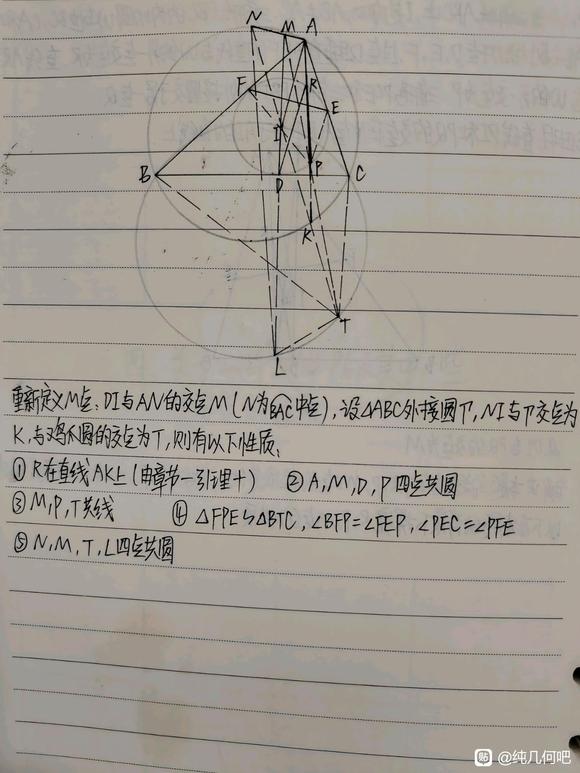 N M A
F R E
I
B D P C
K
T
L
重新定义M点:DI与AN的交点M(N为BAC中点),设△ABC外接圆Γ,NI与Γ交点为
K,与鸡爪圆的交点为T,则有以下性质:
① R在直线AK上(由章节一引理十) ② A,M,D,P四点共圆
③ M,P,T共线 ④ △FPE∽△BTC,∠BFP=∠FEP,∠PEC=∠PFE
⑤ N,M,T,L四点共圆
贴 @纯几何吧